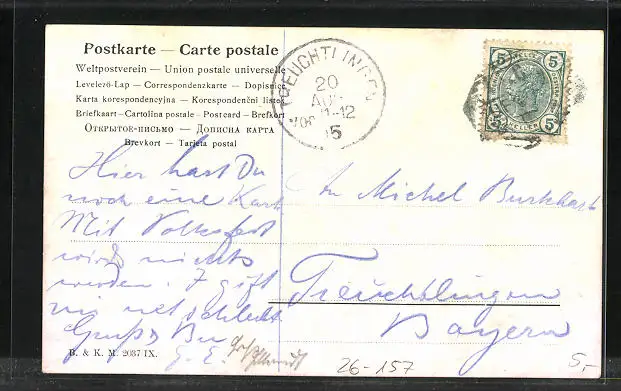 Postkarte — Carte postale
Weltpostverein — Union postale universelle
Levelező-Lap — Correspondenzkarte — Dopisnice
Karta korespondencyjna — Korespondenční lístek
Briefkaart — Cartolina postale — Postcard — Brefkort
Открытое-письмо — Дописна карта
Brevkort — Tarjeta postal
TREUCHTLINGEN
20
AUG
VOR 11-12
05
5 5
5 5
HELLER
Hier hast Du
noch eine Karte
Mit Volksfest
wird nichts
werden.
Gruß
An Michel Burkhart
Treuchtlingen
Bayern
B. & K. M. 2037 IX.
26-157
5,-